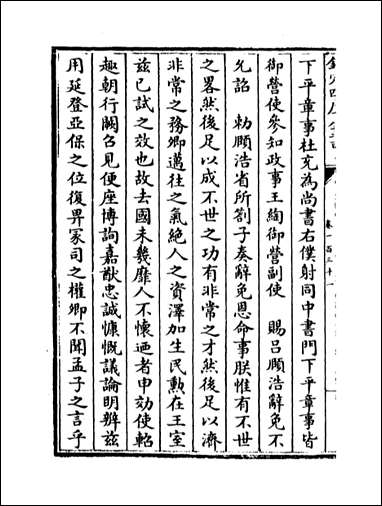 下平章事杜充為尚書右僕射同中書門下平章事皆
御營使參知政事王綯御營副使　賜呂頤浩辭免不
允詔　勑頤浩省所劄子奏辭免恩命事朕惟有不世
之畧然後足以成不世之功有非常之才然後足以濟
非常之務卿邁往之氣絕人之資澤加生民勲在王室
兹已試之效也故去國未幾靡人不懷迺者申効使軺
趣朝行闕召見便座博詢嘉猷忠誠慷慨議論明辨兹
用延登亞保之位復畀冢司之權卿不聞孟子之言乎